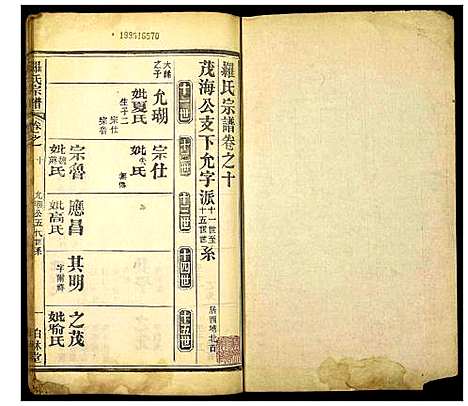 199516570
羅氏宗譜卷之十
茂海公支下允字派十一世至十五世系
居西塘北
十一世
十二世
十三世
十四世
十五世
大
之子
允瑚
妣夏氏
生子二
宗仕
宗魯
宗仕
妣朱氏
宗魯
妣蘇氏
應昌
妣高氏
其明
之茂
妣喻氏
羅氏宗譜
卷之十
允瑚公五代世系
一
柏林堂